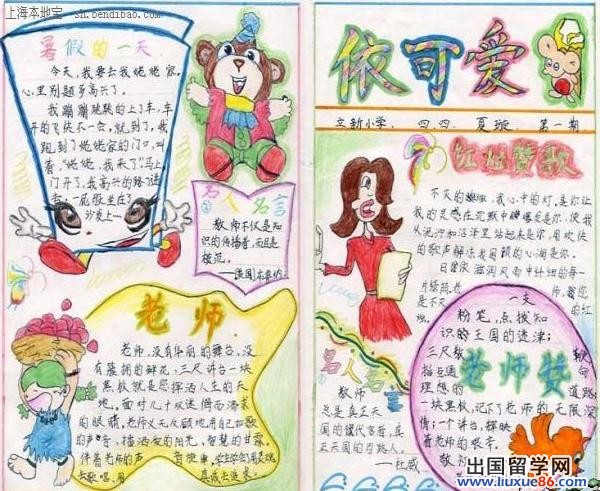 上海本地宝 - sh.bendibao.com
暑假的一天
今天,我要去我姥姥家,
心里别题多高兴了。
我蹦蹦跳跳的上了车,车
开的飞快不一会,就到了,我
跑到了姥姥家的门口,叫
着,“姥姥,我来了”马上
门开了,我高兴的
一屁股坐在
沙发上
名人名言
教师不仅是知
识的传播者,而且是
模范。
老师
老师,没有华丽的舞台,没
有簇拥的鲜花,三尺讲台一块
黑板就是您挥洒人生的天
地。面对几十双
的眼睛,老师义无反顾地用自己如歌
的声音,播洒爱的阳光,智慧的甘露。
伴着老师的声
依可爱
立新小学 四.四. 夏璇 第一期
红烛赞歌
不灭的蜡烛,我心中的灯,是你让
我的灵感在沉默中爆发是你,使我
从泥泞和沼泽里站起来是你,用欢快
的歌声解冻我

一支
粉笔,点拨知
识的王国的迷津;
三尺教
指点通
理想的
道路
一块黑板,记下了老师的无限深
情;一个讲台,辉映
着老师的艰辛。
老师赞
名人名言
教师
总是真正天
国的代言者,真
正天国的引路人。
—杜威
出国留学网
www.liuxue86.com